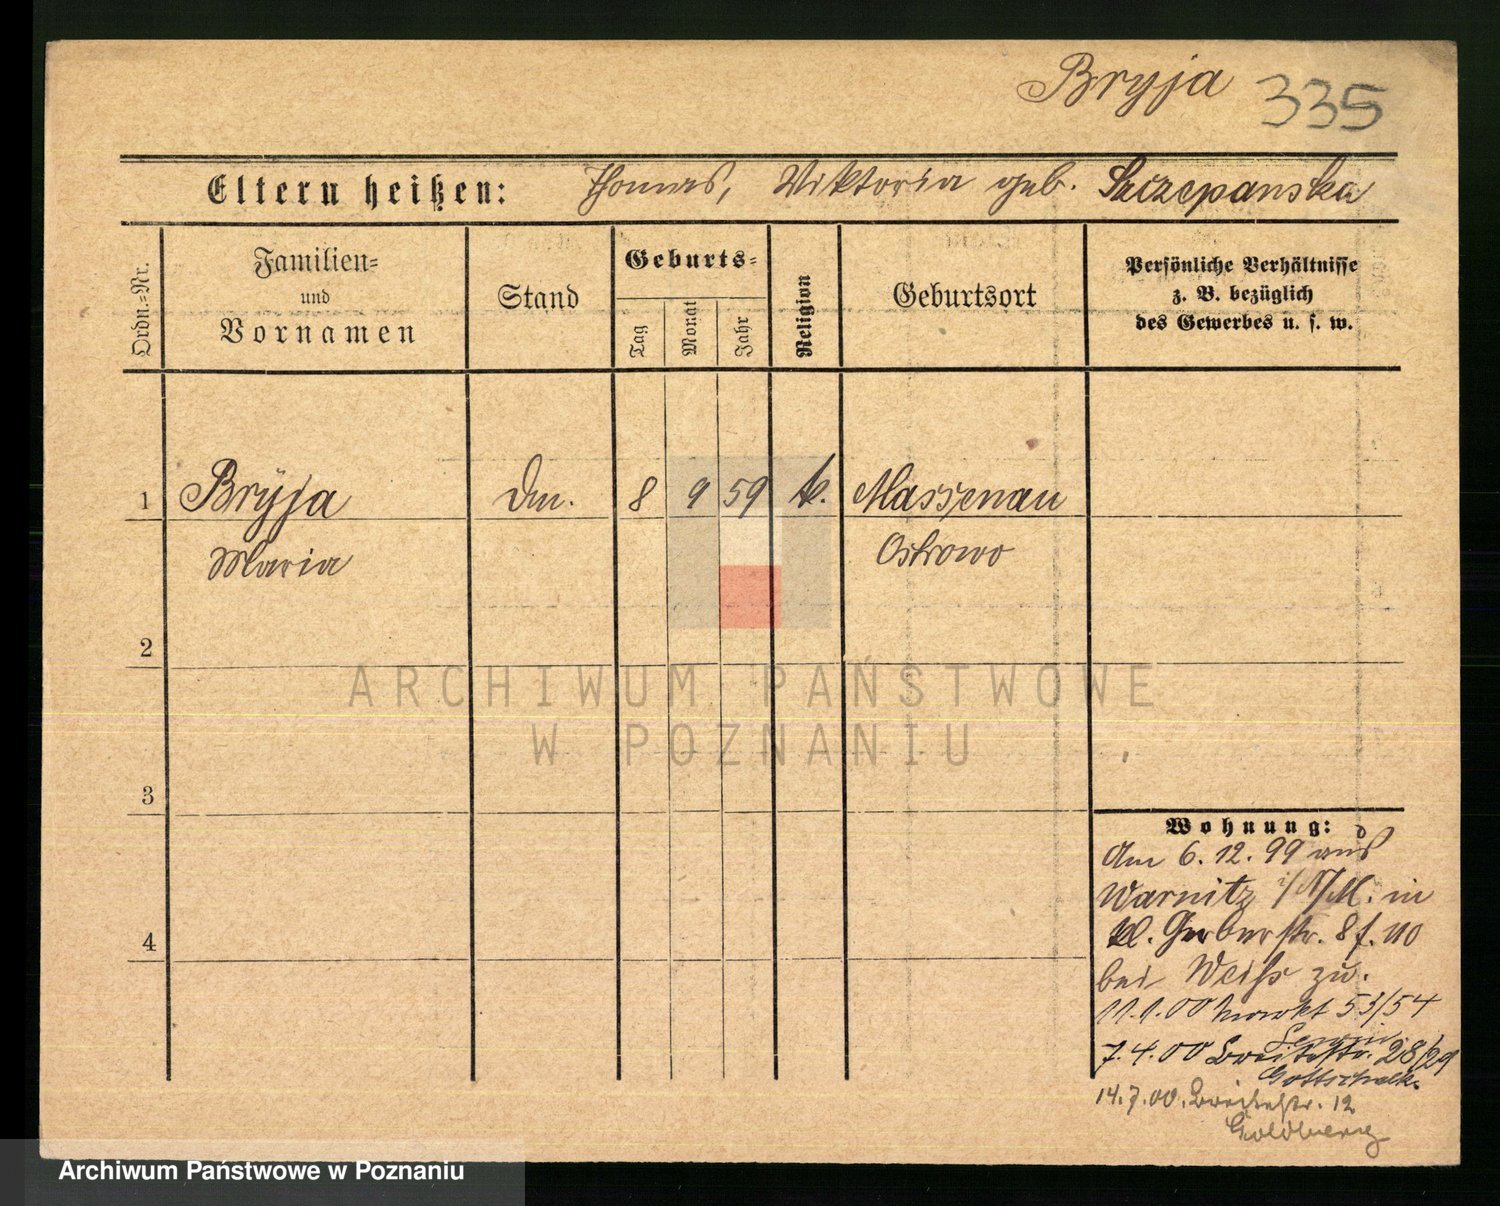 Bryja 335
Eltern heißen: Thomas, Viktoria geb. Szczepanska
Ordn.=Nr.
Familien=
und
Vornamen
Stand
Geburts=
Tag
Monat
Jahr
Religion
Geburtsort
Persönliche Verhältnisse
z. B. bezüglich
des Gewerbes u. s. w.
1 Bryja 8 9 59 k. Massenau
Maria Ostrowo
2
3
4
Wohnung:
Am 6.12.99 aus
Warnitz i/N/M. in
kl. Gerberstr. 8
bei Weiss zu.
11.1.00 Markt 53/54
7.4.00 Breitestr. 28/29
Gottschalk
14.7.00. Breitestr. 12
Goldberg
ARCHIWUM PAŃSTWOWE
W POZNANIU
Archiwum Państwowe w Poznaniu